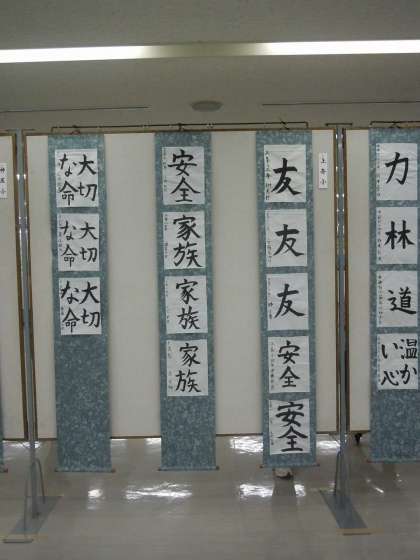 大切
な命
大切
な命
大切
な命
安全
家族
家族
家族
友
友
友
安全
安全
力
林
道
温か
い心